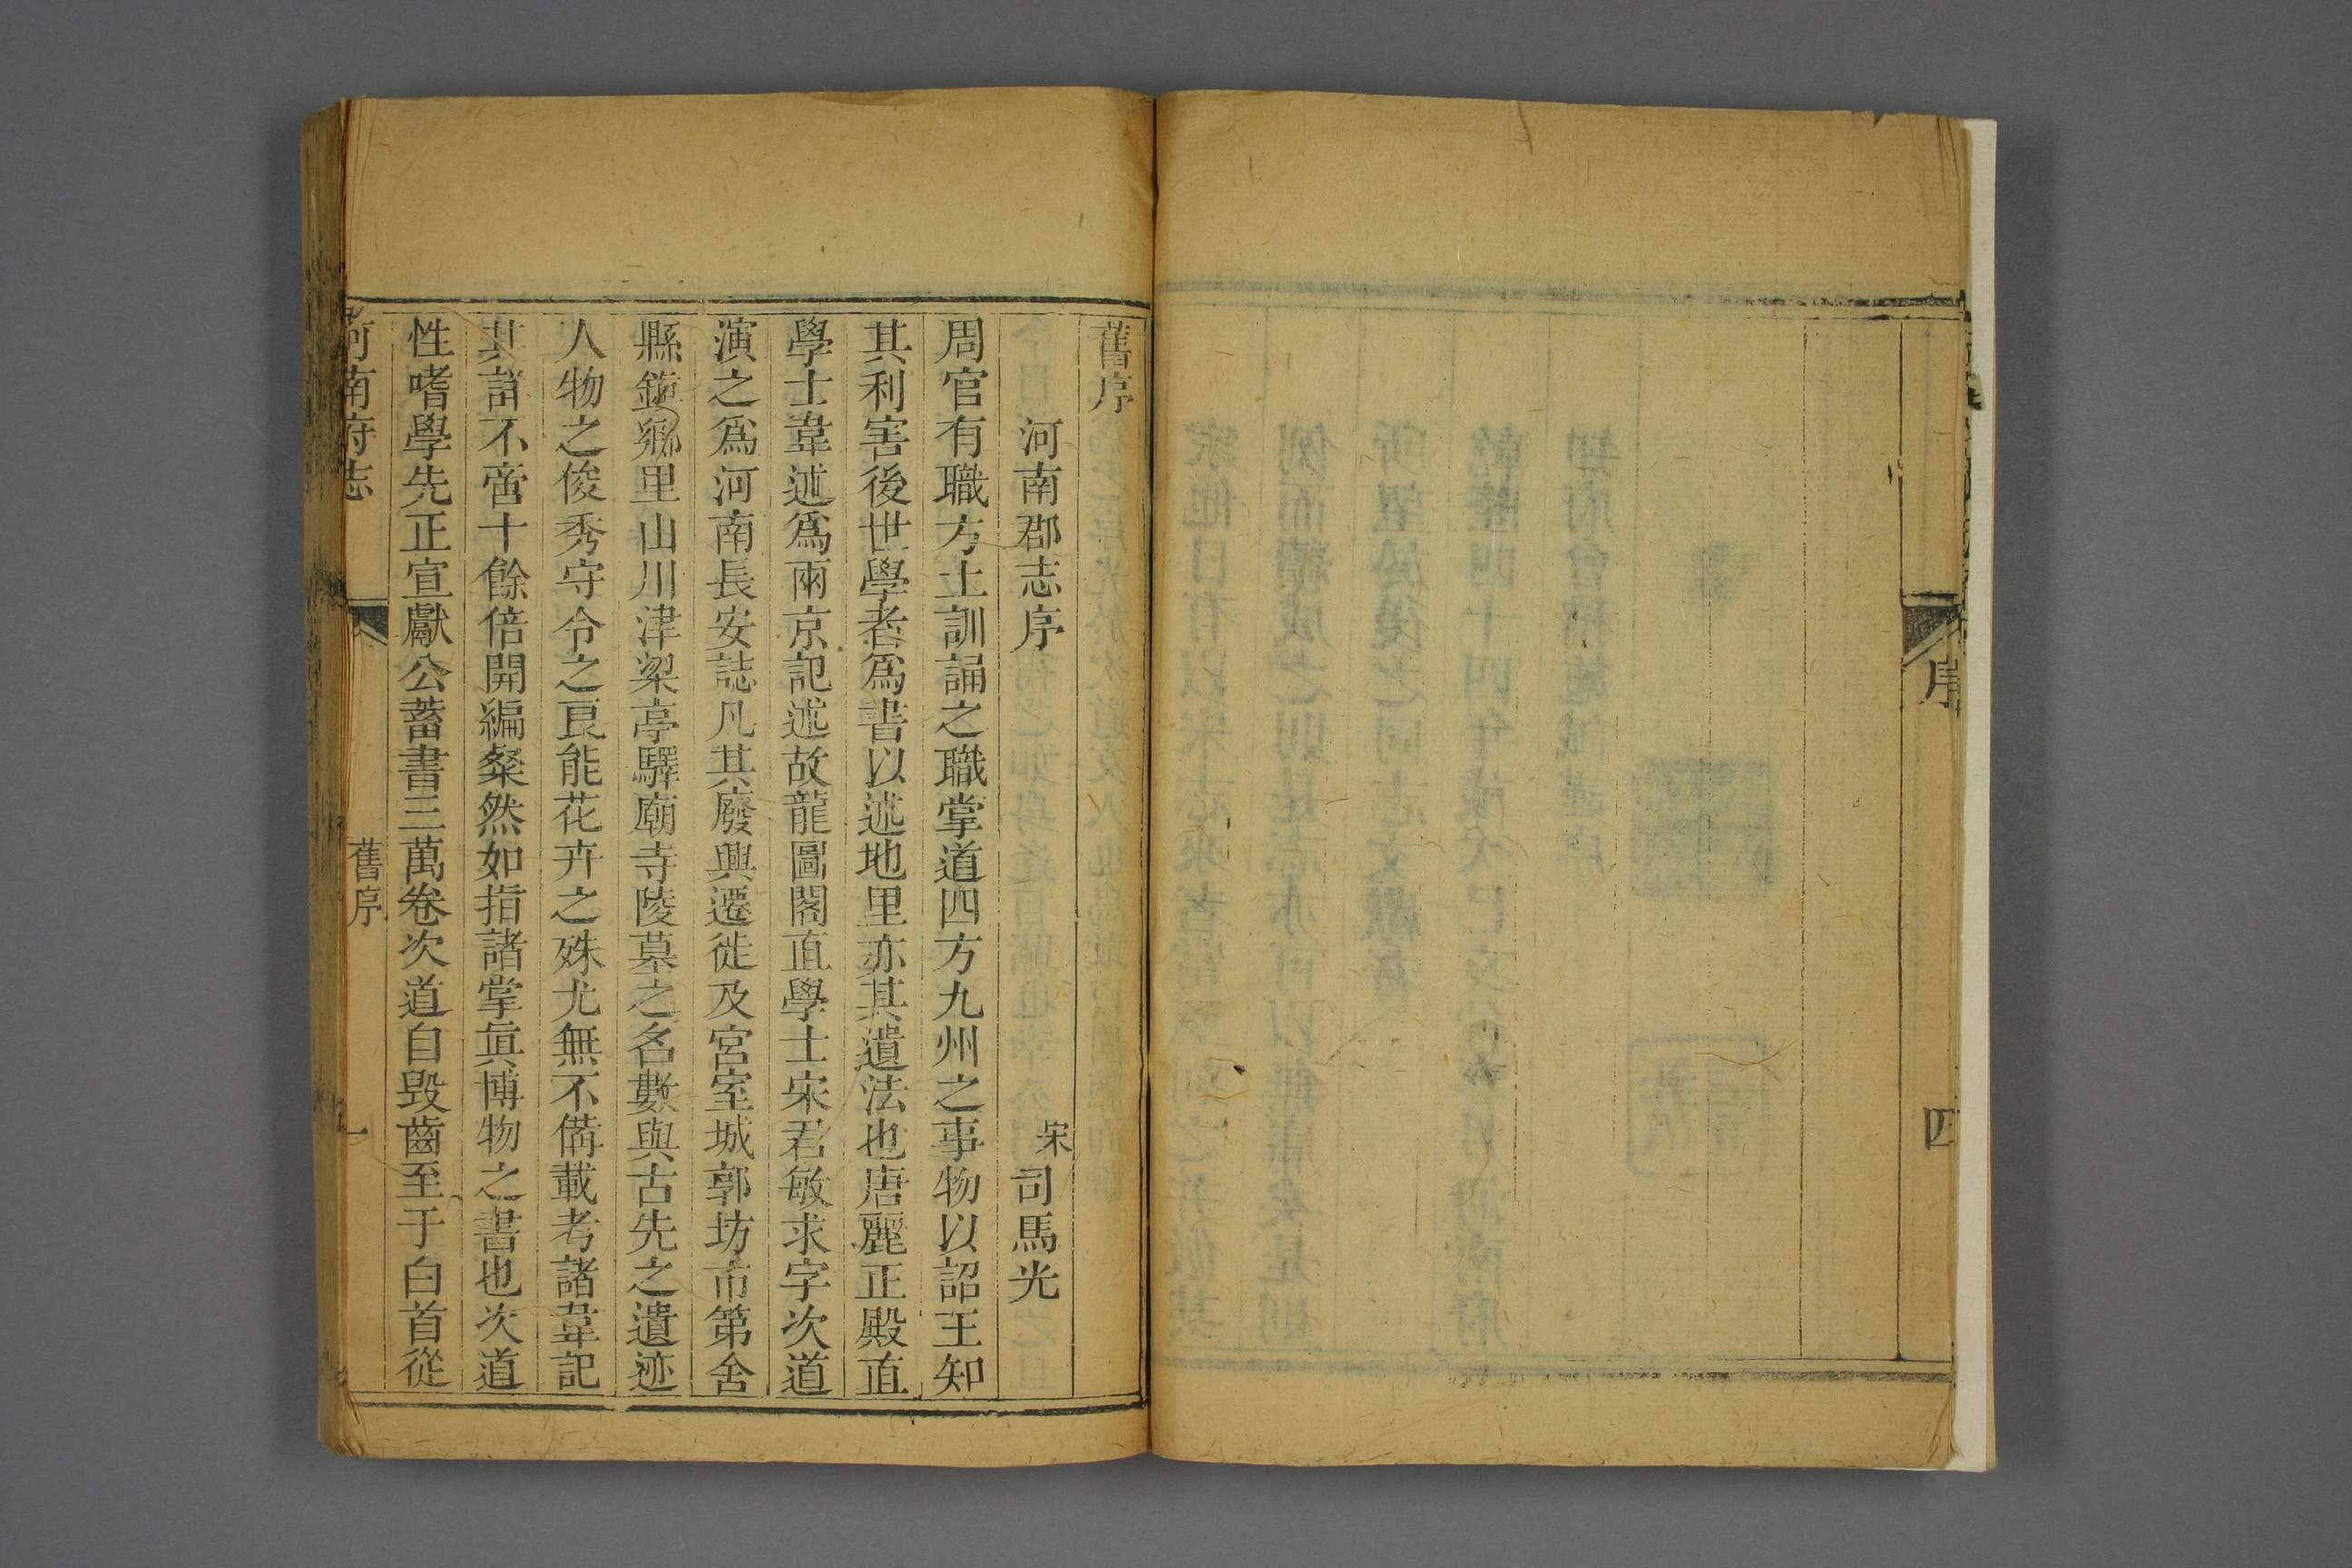 序
四
舊序
河南郡志序
宋司馬光
周官有職方土訓誦之職掌道四方九州之事物以詔王知
其利害後世學者爲書以述地里亦其遺法也唐麗正殿直
學士韋述爲兩京記述故龍圖閣直學士宋君敏求字次道
演之爲河南長安誌凡其廢興遷徙及宮室城郭坊市第舍
縣鎮鄉里山川津梁亭驛廟寺陵墓之名數與古先之遺迹
人物之俊秀守令之良能花卉之殊尤無不備載考諸韋記
其詳不啻十餘倍開編粲然如指諸掌眞博物之書也次道
性嗜學先正宣獻公蓄書三萬卷次道自毀齒至于白首從
河南府志
舊序
一